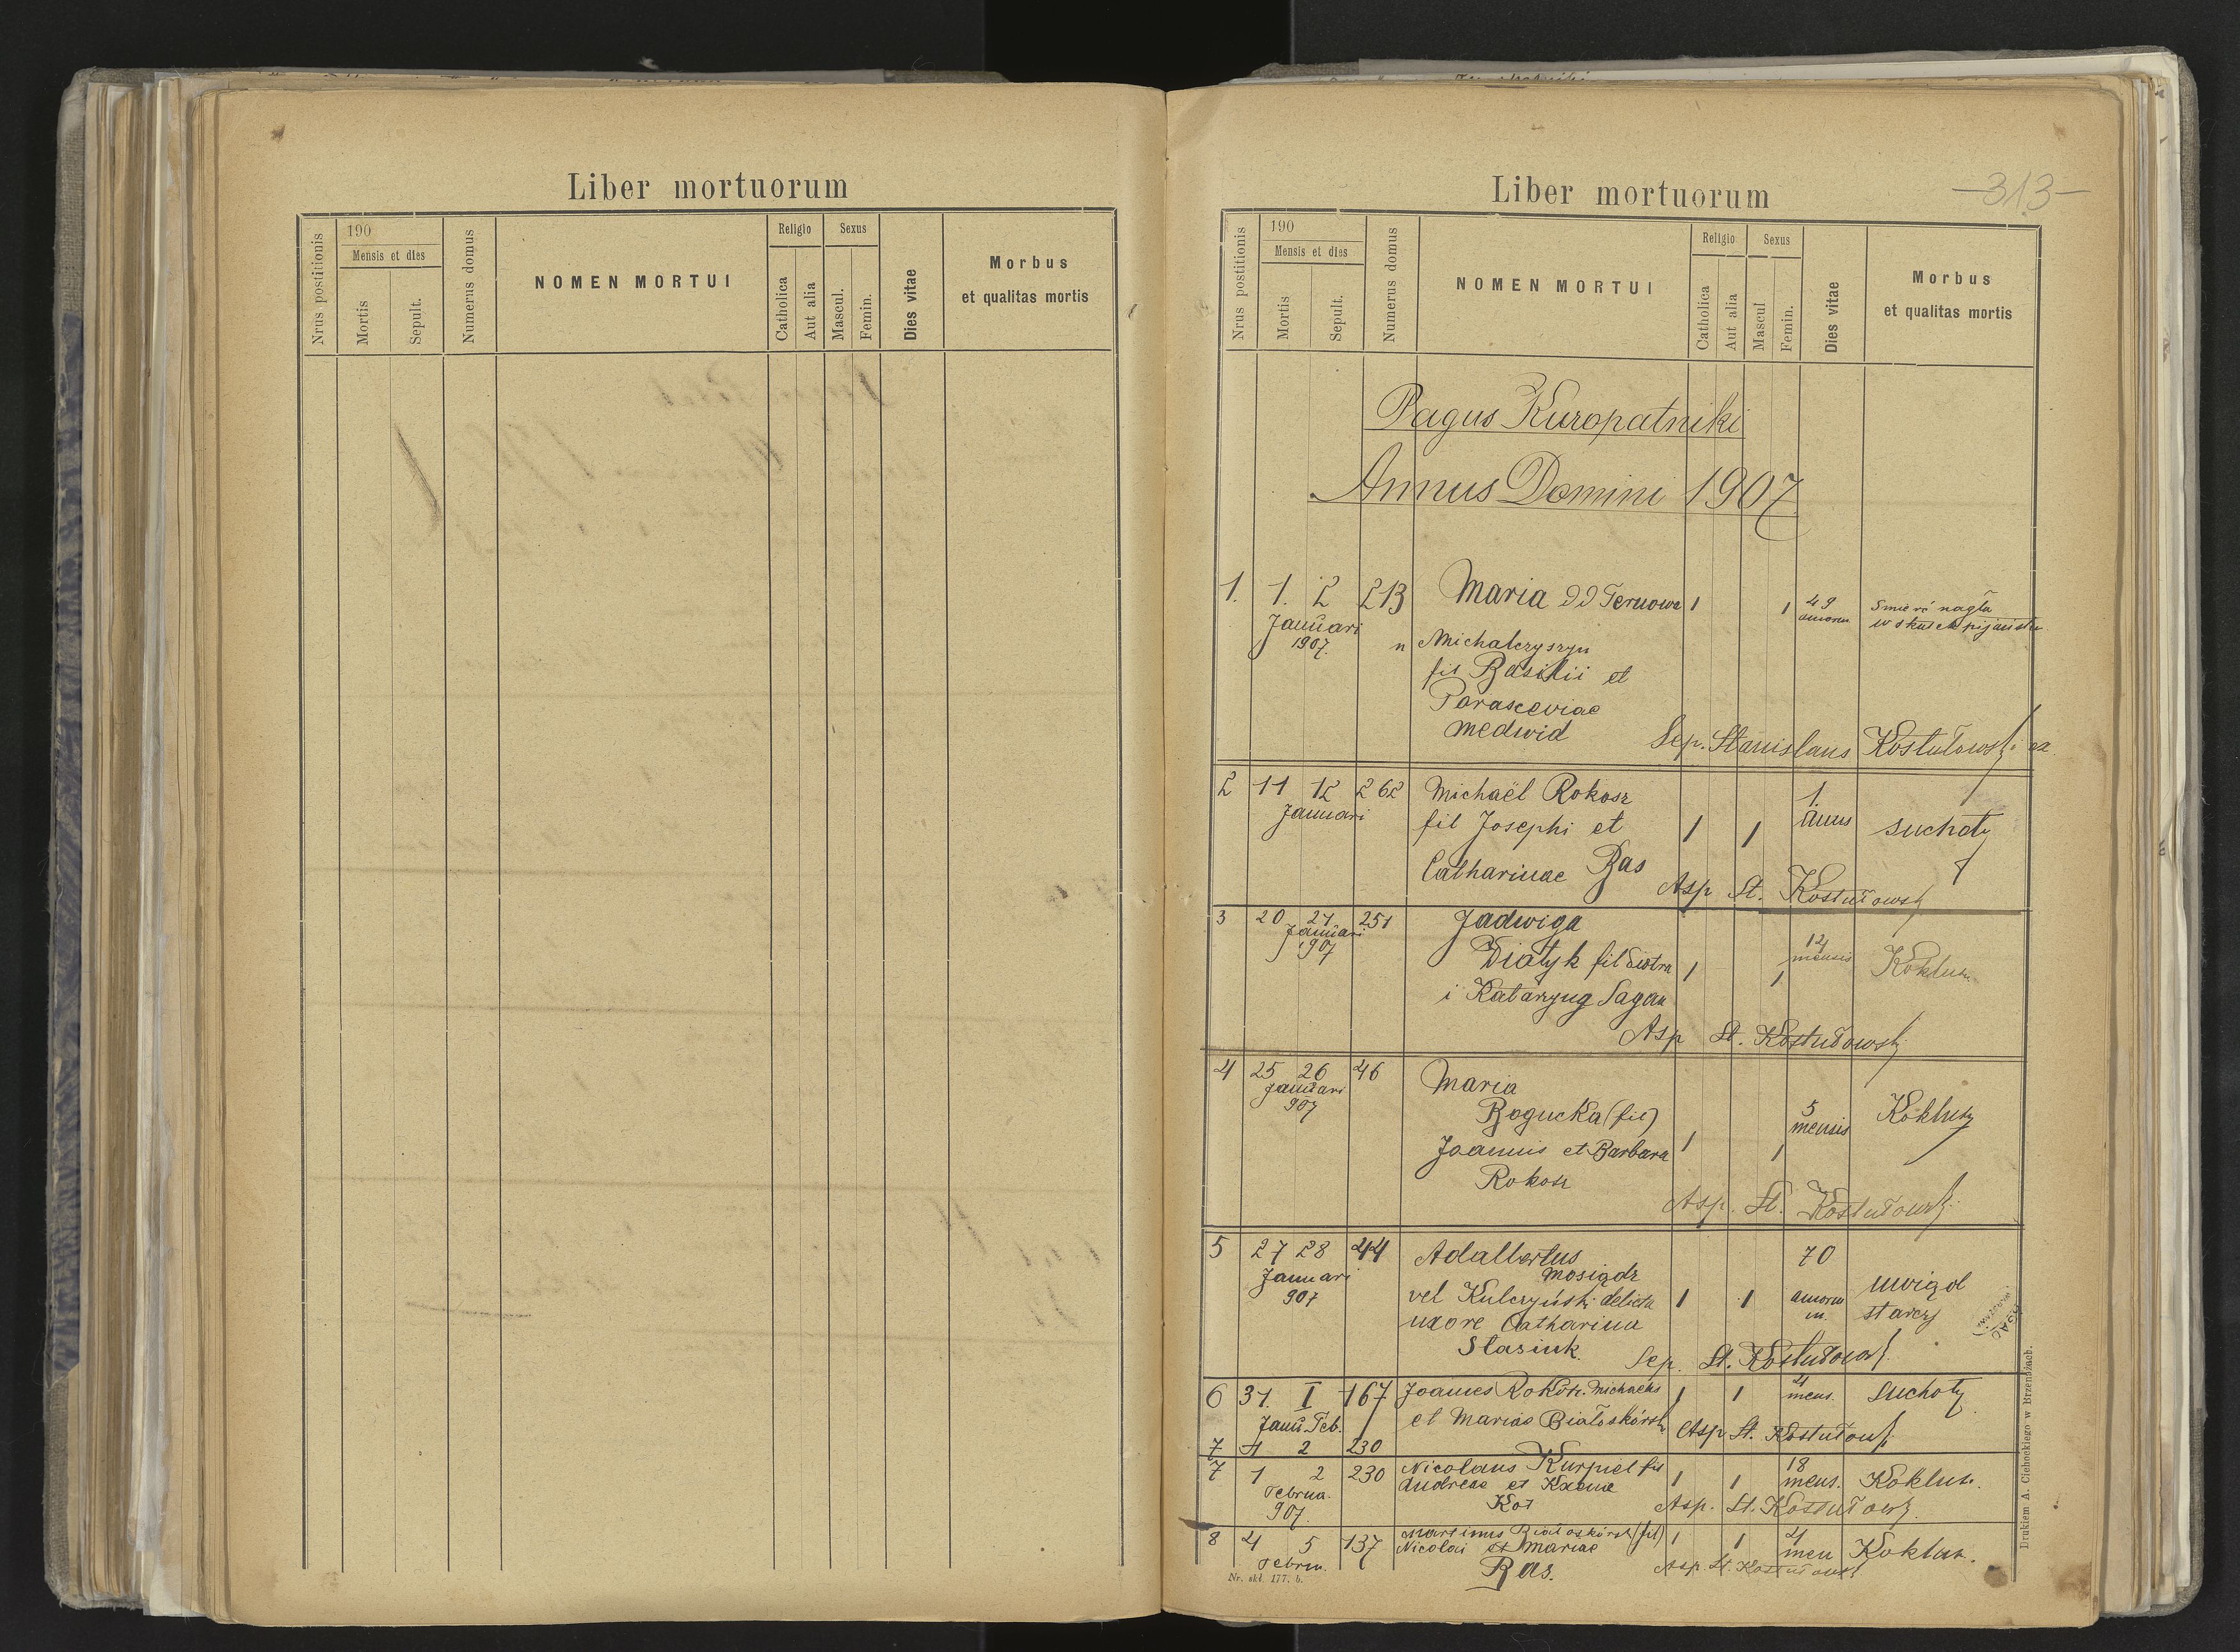 Liber mortuorum
Nrus postitionis
190
Mensis et dies
Mortis
Sepult.
Numerus domus
NOMEN MORTUI
Religio
Catholica
Aut alia
Sexus
Mascul.
Femin.
Dies vitae
Morbus
et qualitas mortis
Liber mortuorum
—313—
Nrus postitionis
190
Mensis et dies
Mortis
Sepult.
Numerus domus
NOMEN MORTUI
Religio
Catholica
Aut alia
Sexus
Mascul
Femin.
Dies vitae
Morbus
et qualitas mortis
Pagus Kuropatniki
Annus Domini 1907
1. 1. 2 213 Maria 1 1 49 Smierć nagła
Januari
1907.
n Michalczyszyn
fil Basilii et
Parasceviae
Medwid
Sep. Stanislaus Kostułowski
2 11 12 262 Michaël Rokosz 1.
Januari fil Josephi et 1 1 annus suchoty
Catharinae Bas
Asp St. Kostułowski
3 20 21 251 Jadwiga
Januari
1907
Wiatyk fil 1 12 mensis Koklusz
i Katarzyny Sagan 1
Asp St. Kostułowski
4 25 26 46 Maria
Januari
907
Bogucka (fil) 5 mensis Koklusz
Joannis et Barbara 1 1
Rokosz
Asp. St. Kostułowski
5 27 28 44 Adalbertus 70
Januari Mosiądz
907 vel Kulczyński 1 1 uwiąd
uxore Catharina starczy
Stasiuk.
Sep. St. Kostułowski
6 31. I 167 Joannes Rokosz Michaelis 1 1 4 mens. Suchoty
Janu. Feb. et Mariae Białoskórska Asp St. Kostułowski
7 1 2 230
7 1 2 230 Nicolaus Kurpiel fil 1 1 18 mens. Koklusz.
Februa. Andreae et
907. Kot Asp. St. Kostułowski
8 4 5 137 Martinus Białoskórski (fil) 1 1 4 men Koklusz.
Febru. Nicolai et Mariae
Bas. Asp. St. Kostułowski
Nr. skł. 177. b.
Drukiem A. Ciehockiego w Brzeżanach.
AGAD